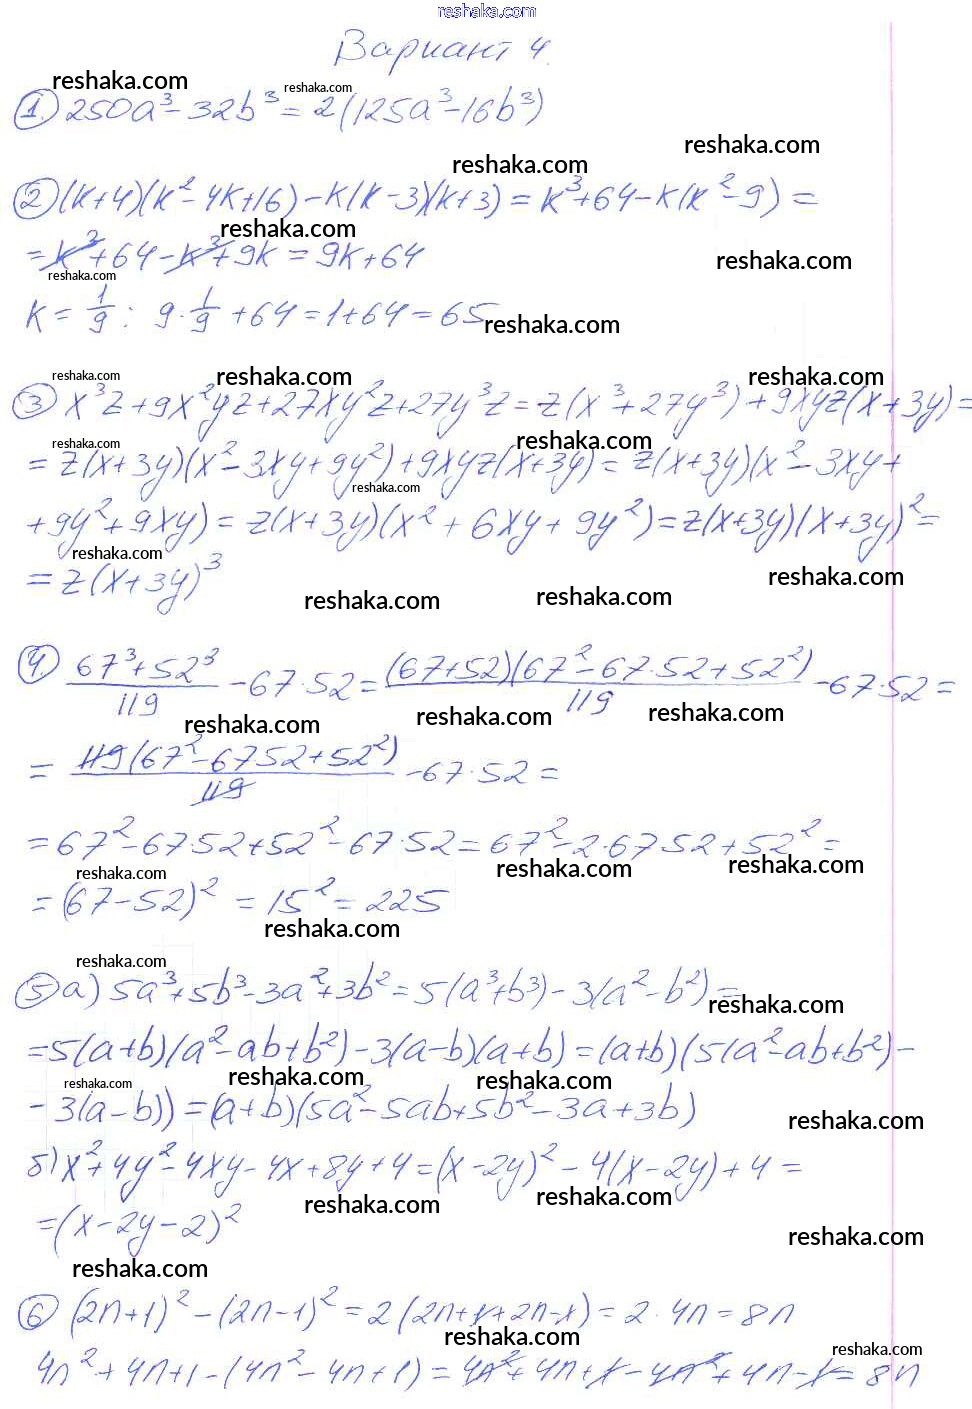 reshaka.com
Вариант 4.
reshaka.com reshaka.com
1. 250a³ - 32b³ = 2(125a³ - 16b³)
reshaka.com reshaka.com
2 (k+4)(k² - 4k + 16) - k(k-3)(k+3) = k³ + 64 - k(k² - 9) =
reshaka.com
= k³ + 64 - k³ + 9k = 9k + 64
reshaka.com reshaka.com
k = 1/9 : 9 · 1/9 + 64 = 1 + 64 = 65
reshaka.com
reshaka.com reshaka.com reshaka.com
3 x³z + 9x²yz + 27xy²z + 27y³z = z(x³ + 27y³) + 9xyz(x+3y) =
reshaka.com reshaka.com
= z(x+3y)(x² - 3xy + 9y²) + 9xyz(x+3y) = z(x+3y)(x² - 3xy +
reshaka.com
+ 9y² + 9xy) = z(x+3y)(x² + 6xy + 9y²) = z(x+3y)(x+3y)² =
reshaka.com reshaka.com
= z(x+3y)³
reshaka.com reshaka.com
4. (67³ + 52³)/119 - 67·52 = (67+52)(67² - 67·52 + 52²)/119 - 67·52 =
reshaka.com reshaka.com reshaka.com
= 119(67² - 6752 + 52²)/119 - 67·52 =
= 67² - 67·52 + 52² - 67·52 = 67² - 2·67·52 + 52² =
reshaka.com reshaka.com reshaka.com
= (67-52)² = 15² = 225
reshaka.com
reshaka.com
5 а) 5a³ + 5b³ - 3a² + 3b² = 5(a³ + b³) - 3(a² - b²) =
reshaka.com
= 5(a+b)(a² - ab + b²) - 3(a-b)(a+b) = (a+b)(5(a² - ab + b²) -
reshaka.com reshaka.com reshaka.com
- 3(a-b)) = (a+b)(5a² - 5ab + 5b² - 3a + 3b)
reshaka.com
б) x² + 4y² - 4xy - 4x + 8y + 4 = (x-2y)² - 4(x-2y) + 4 =
reshaka.com reshaka.com
= (x-2y-2)²
reshaka.com
reshaka.com
6 (2n+1)² - (2n-1)² = 2(2n+1+2n-1) = 2·4n = 8n
reshaka.com reshaka.com
4n² + 4n + 1 - (4n² - 4n + 1) = 4n² + 4n + 1 - 4n² + 4n - 1 = 8n